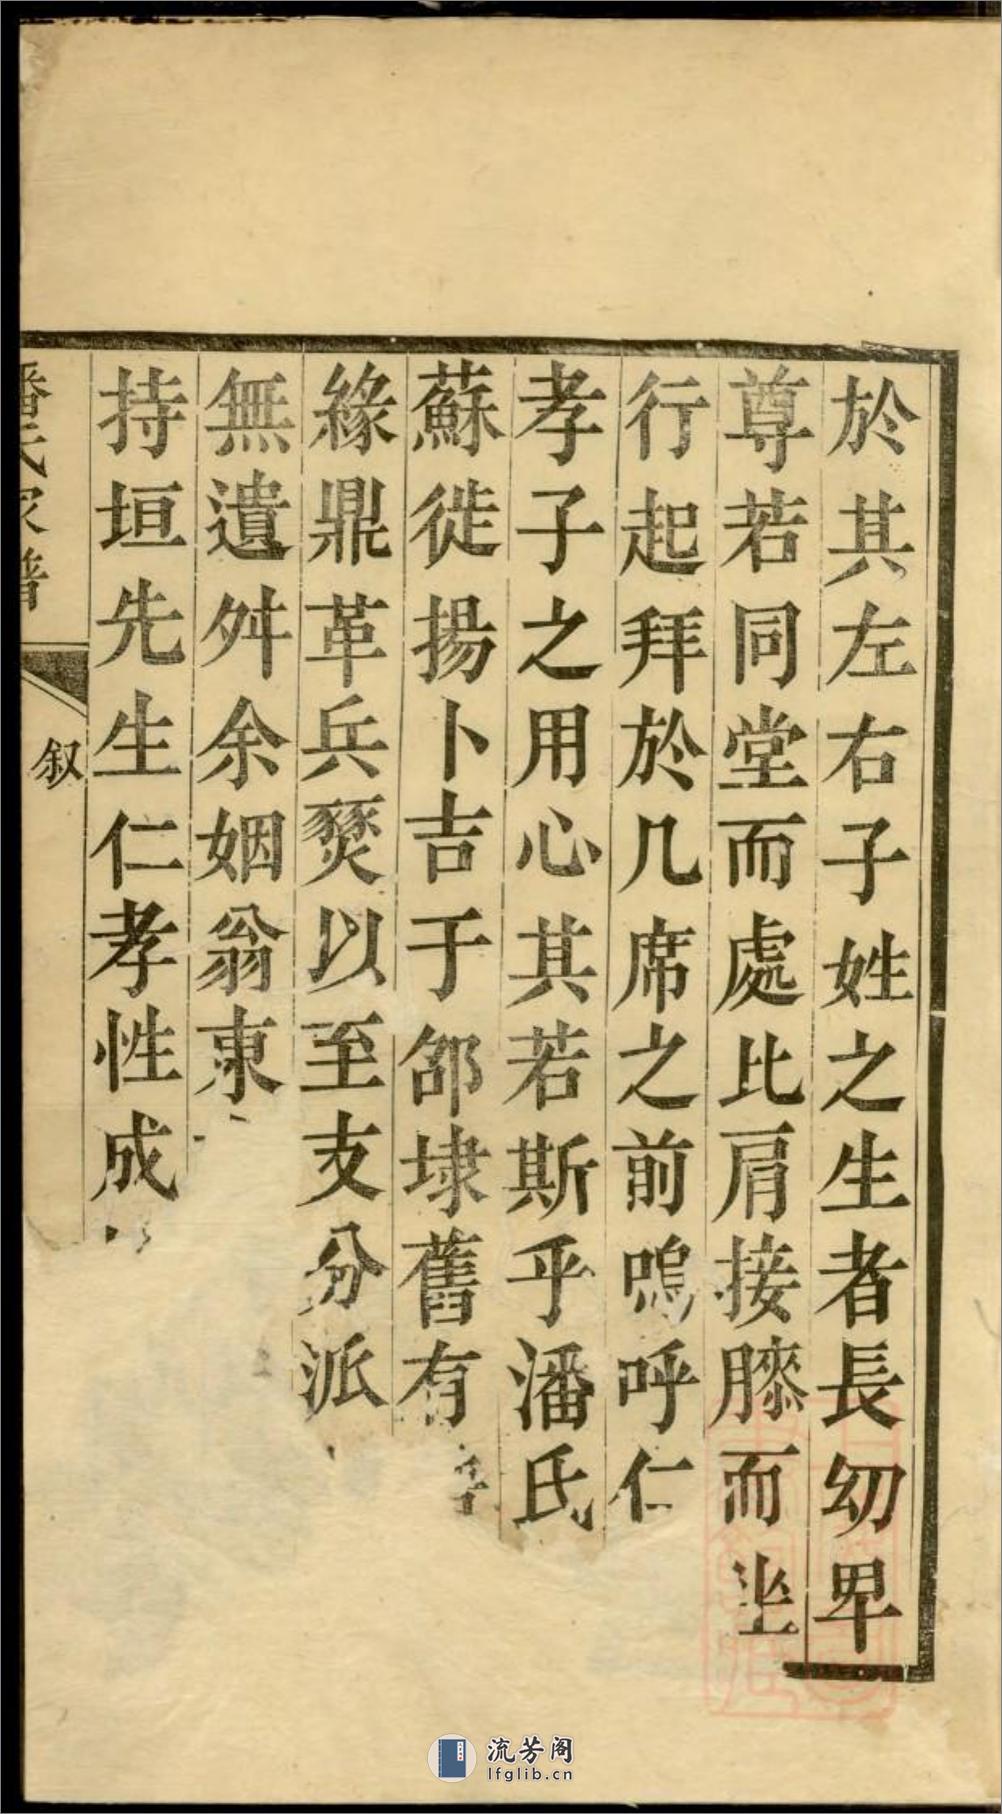 於其左右子姓之生者長㓜𤰞
尊若同堂而處比肩接膝而坐
行起拜於几席之前嗚呼仁
孝子之用心其若斯乎潘氏
蘇徙揚卜吉于邵埭舊有
緣鼎革兵燹以至支分派
無遺舛余姻翁東
持垣先生仁孝性成
潘氏家譜
叙
流芳阁
lfglib.cn